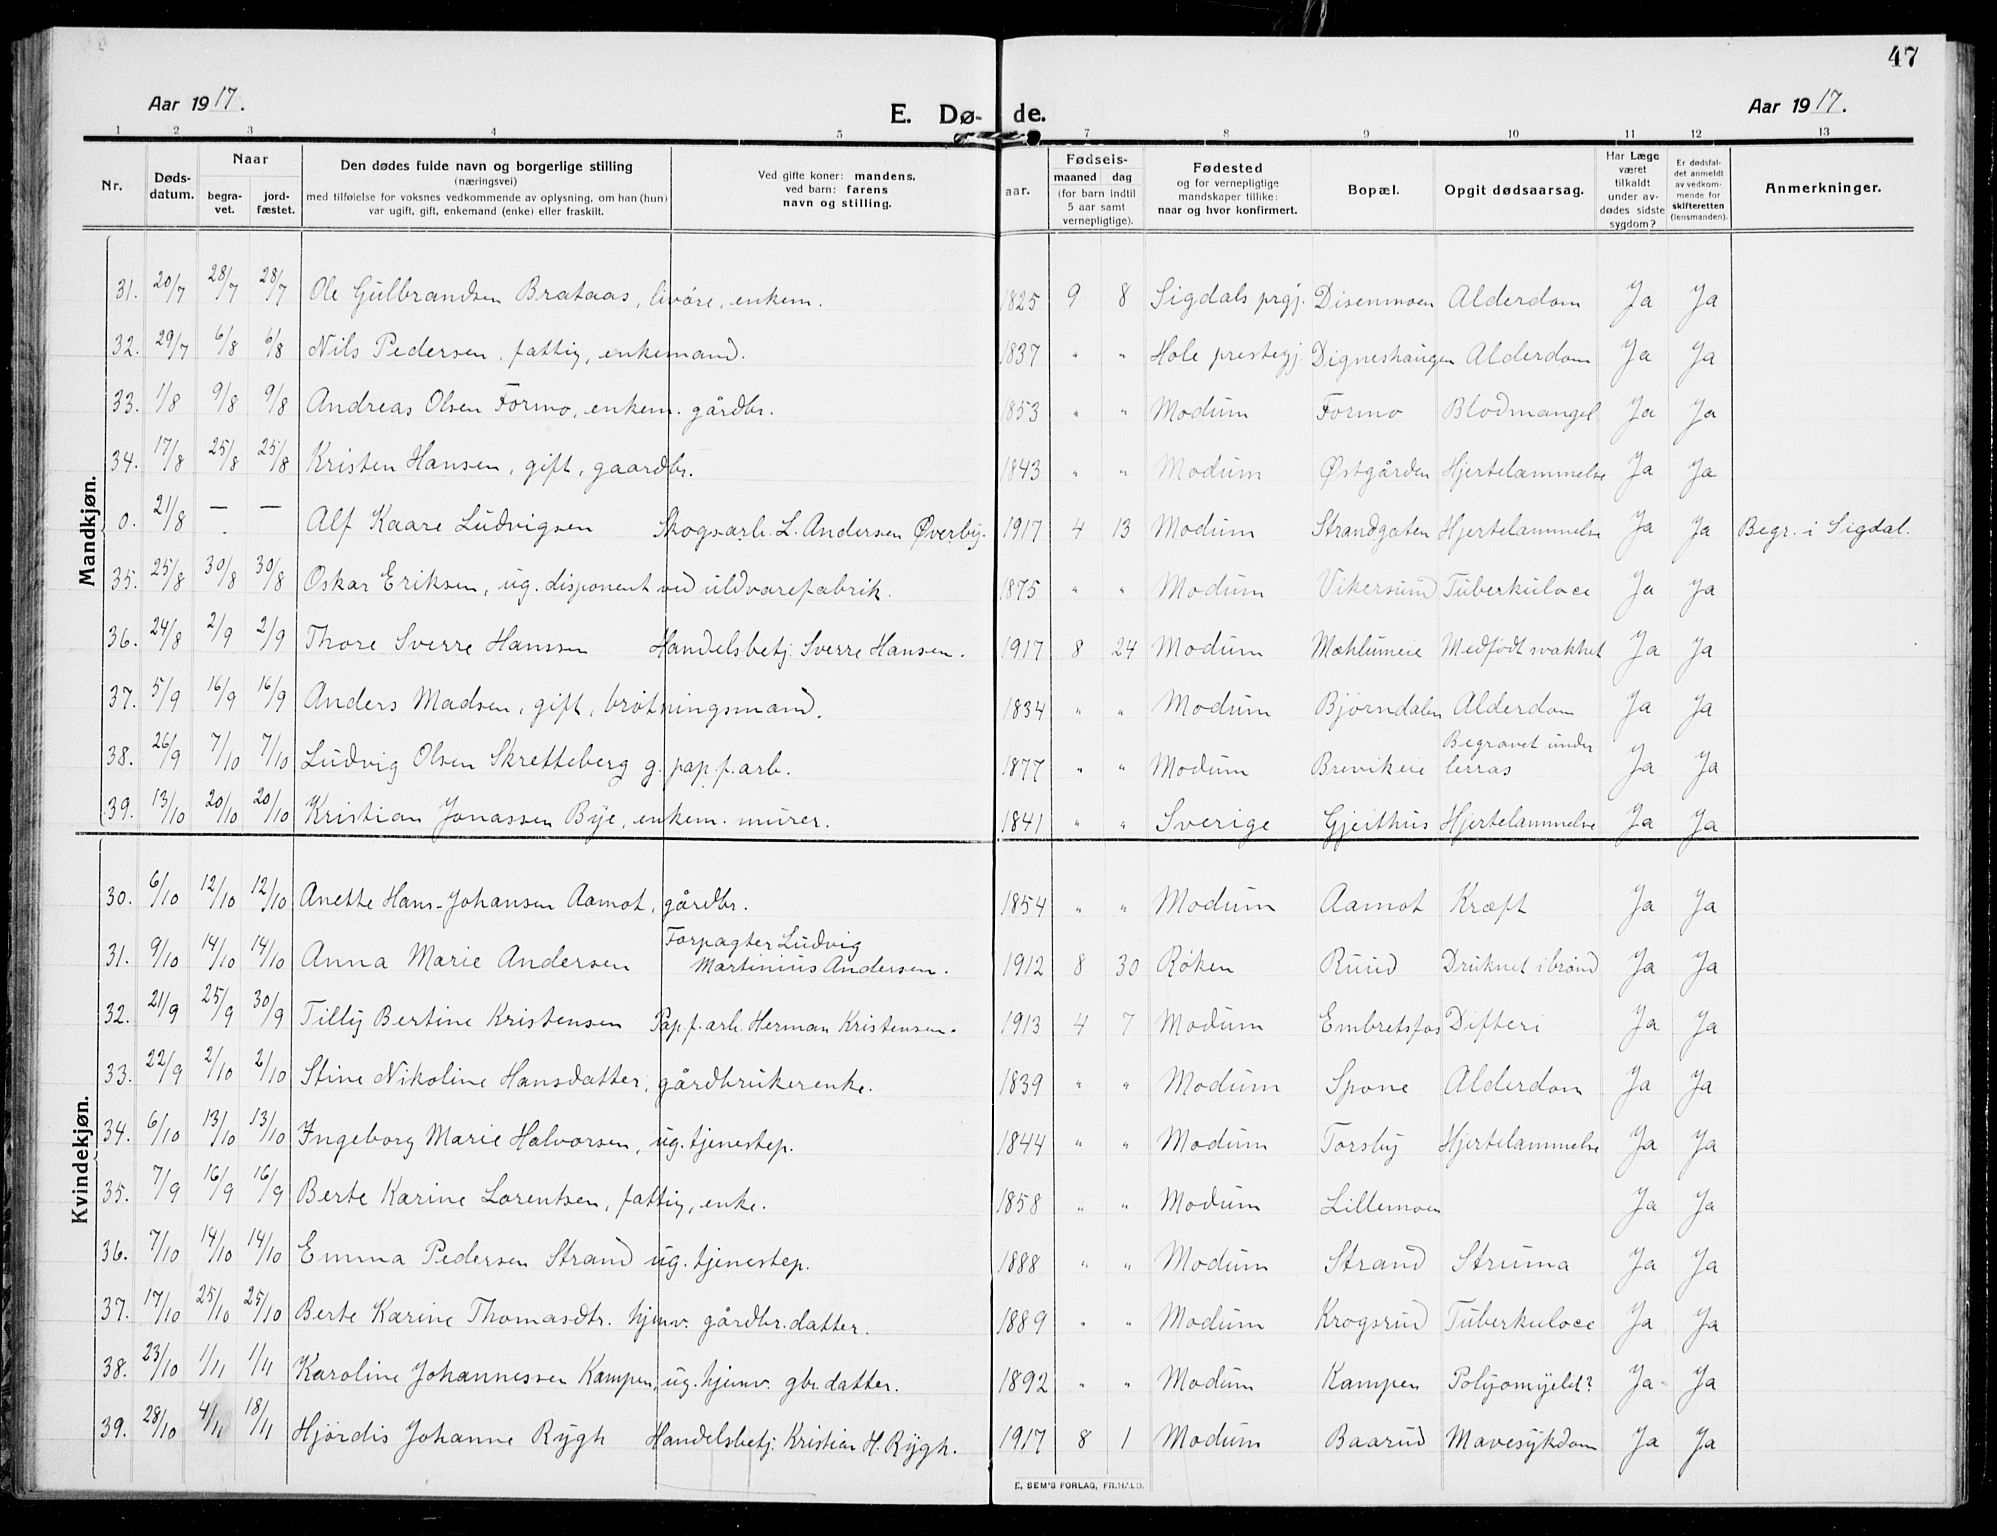 47
Aar 1917.
E. Døde.
Aar 1917.
1 2 3 4 5 7 8 9 10 11 12 13
Nr.
Døds-
datum.
Naar
begra-
vet.
jord-
fæstet.
Den dødes fulde navn og borgerlige stilling
(næringsvei)
med tilføielse for voksnes vedkommende av oplysning, om han (hun)
var ugift, gift, enkemand (enke) eller fraskilt.
Ved gifte koner: mandens,
ved barn: farens
navn og stilling.
aar.
Fødsels-
maaned dag
(for barn indtil
5 aar samt
vernepligtige).
Fødested
og for vernepligtige
mandskaper tillike:
naar og hvor konfirmert.
Bopæl.
Opgit dødsaarsag.
Har Læge
været
tilkaldt
under av-
dødes sidste
sygdom?
Er dødsfal-
det anmeldt
av vedkom-
mende for
skifteretten
(lensmanden).
Anmerkninger.
Mandkjøn.
31. 20/7 28/7 28/7 Ole Gulbrandsen Brataas, livøre, enkem. 1825 9 8 Sigdals prgj. Disenmoen Alderdom Ja Ja
32. 29/7 6/8 6/8 Nils Pedersen, fattig, enkemand. 1837 " " Hole prestegj. Digneshaugen Alderdom Ja Ja
33. 1/8 9/8 9/8 Andreas Olsen Formo, enkem. gårdbr. 1853 " " Modum Formo Blodmangel Ja Ja
34. 17/8 25/8 25/8 Kristen Hansen, gift, gaardbr. 1843 " " Modum Østgården Hjertelammelse Ja Ja
0. 21/8 — — Alf Kaare Ludvigsen Skogsarb. L. Andersen Øverby. 1917 4 13 Modum Strandgaten Hjertelammelse Ja Ja Begr. i Sigdal.
35. 25/8 30/8 30/8 Oskar Eriksen, ug. disponent ved uldvarefabrik. 1875 " " Modum Vikersund Tuberkuloce Ja Ja
36. 24/8 2/9 2/9 Thore Sverre Hanssen Handelsbetj. Sverre Hansen. 1917 8 24 Modum Mæhlumeie Medfødt svakhet Ja Ja
37. 5/9 16/9 16/9 Anders Madsen, gift, brøtningsmand. 1834 " " Modum Bjørndalen Alderdom Ja Ja
38. 26/9 7/10 7/10 Ludvig Olsen Skretteberg g. pap.f.arb. 1877 " " Modum Brevikeie Begravet under
lerras Ja Ja
39. 13/10 20/10 20/10 Kristian Jonassen Bye, enkem. murer. 1841 " " Sverige Gjeithus Hjertelammelse Ja Ja
Kvindekjøn.
30. 6/10 12/10 12/10 Anette Hans-Johansen Aamot, gårdbr. 1854 " " Modum Aamot Kræft Ja Ja
31. 9/10 14/10 14/10 Anna Marie Andersen Forpagter Ludvig
Martinius Andersen. 1912 8 30 Røken Ruud Druknet i brønd Ja Ja
32. 21/9 25/9 30/9 Tilly Bertine Kristensen Pap.f.arb. Herman Kristensen. 1913 4 7 Modum Embretsfos Difteri Ja Ja
33. 22/9 2/10 2/10 Stine Nikoline Hansdatter, gårdbrukerenke. 1839 " " Modum Spone Alderdom Ja Ja
34. 6/10 13/10 13/10 Ingeborg Marie Halvorsen, ug. tjenestep. 1844 " " Modum Torsby Hjertelammelse Ja Ja
35. 7/9 16/9 16/9 Berte Karine Lorentsen, fattig, enke. 1858 " " Modum Lillemoen Ja Ja
36. 7/10 14/10 14/10 Emma Pedersen Strand ug. tjenestep. 1888 " " Modum Strand Struma Ja Ja
37. 17/10 25/10 25/10 Berte Karine Thomasdtr. hjemv. gårdbr.datter. 1889 " " Modum Krogsrud Tuberkuloce Ja Ja
38. 23/10 1/11 1/11 Karoline Johannessen Kampen, ug. hjemv. gbr.datter. 1892 " " Modum Kampen Polyomyelet? Ja Ja
39. 28/10 4/11 18/11 Hjørdis Johanne Rygh Handelsbetj. Kristian H. Rygh. 1917 8 1 Modum Baarud Mavesykdom Ja Ja
E. SEM'S FORLAG, FR.HALD.